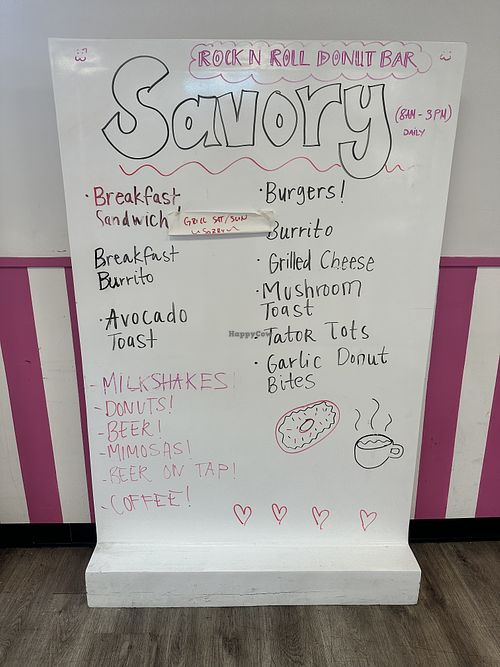 ROCK N ROLL DONUT BAR
Savory
(8AM - 3PM)
DAILY
· Breakfast
Sandwich!
GRILL SAT/SUN
~SORRY~
Breakfast
Burrito
· Avocado
Toast
· Burgers!
Burrito
· Grilled Cheese
· Mushroom
Toast
Tator Tots
· Garlic Donut
Bites
- MILKSHAKES!
- DONUTS!
- BEER!
- MIMOSAS!
- BEER ON TAP!
- COFFEE!
HappyCow